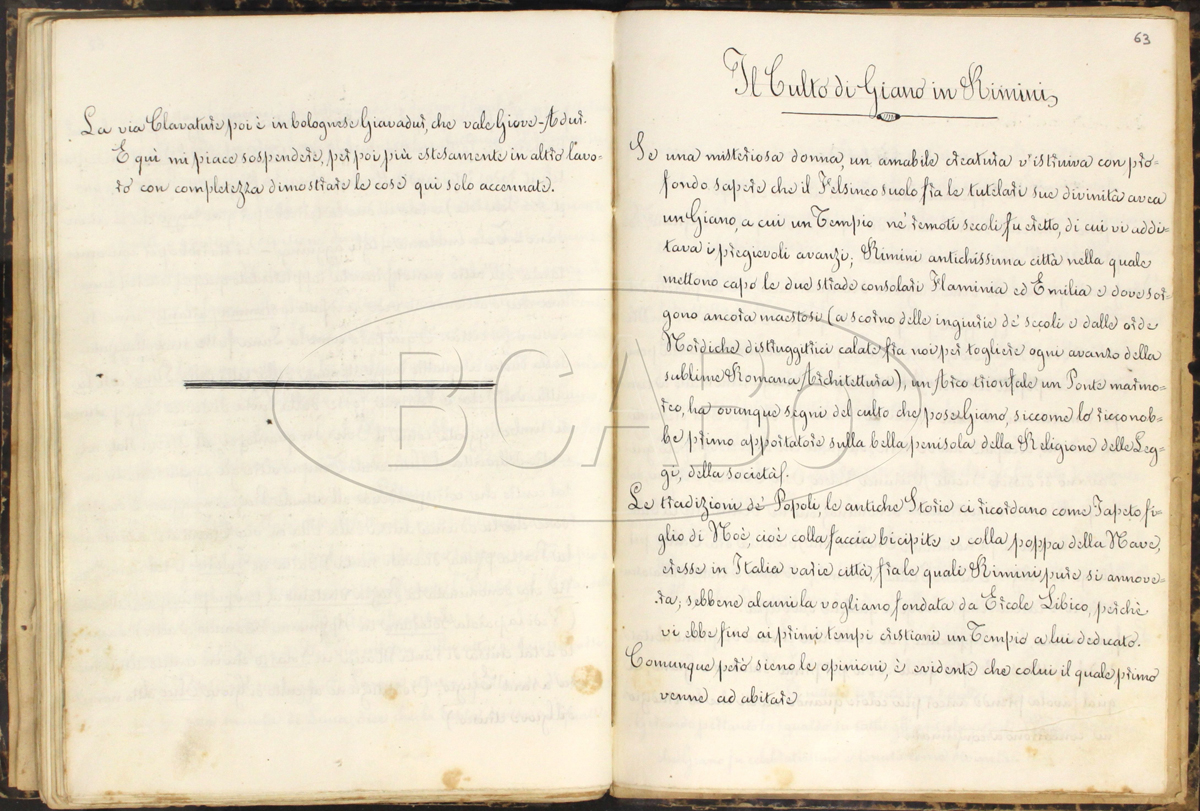 La via Clavature poi è in bolognese Giavadur, che vale Giove-Adur.
E qui mi piace sospendere, per poi più estesamente in altro lavo-
ro con completezza dimostrare le cose qui solo accennate.
63
Il Culto di Giano in Rimini
Se una misteriosa donna, un amabile creatura v'istruiva con pro-
fondo sapere che il Felsineo suolo fra le tutelari sue divinità avea
un Giano, a cui un Tempio ne' remoti secoli fu eretto, di cui vi addi-
tava i pregievoli avanzi; Rimini antichissima città nella quale
mettono capo le due strade consolari Flaminia ed Emilia e dove sor-
gono ancora maestosi (a scorno delle ingiurie de' secoli e dalle orde
Nordiche distruggitrici calate fra noi per togliere ogni avanzo della
sublime Romana Architettura), un Arco trionfale un Ponte marmo-
reo, ha ovunque segni del culto che pose a Giano, siccome lo ricconob-
be primo apportatore sulla bella penisola della Religione delle Leg-
gi, della società.
Le tradizioni de' Popoli, le antiche Storie ci ricordano come Iapeto fi-
glio di Noè, cioè colla faccia bicipite e colla poppa della Nave,
eresse in Italia varie città, fra le quali Rimini pure si annove-
ra; sebbene alcuni la vogliano fondata da Ercole Libico, perchè
vi ebbe fino ai primi tempi cristiani un Tempio a lui dedicato.
Comunque però sieno le opinioni, è evidente che colui il quale primo
venne ad abitare
BCABO